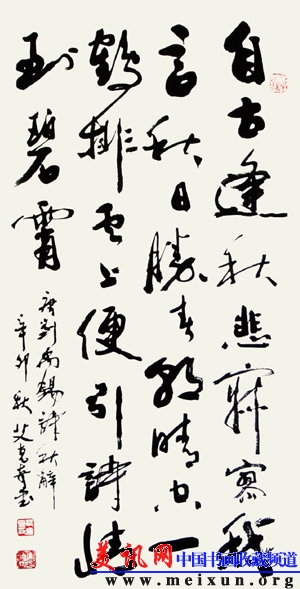 自古逢秋悲寂寥我
言秋日勝春朝晴空一
鶴排云上便引詩情
到碧霄
唐劉禹錫詩秋辭
辛卯秋
美讯网
中国书画收藏频道
www.meixun.org